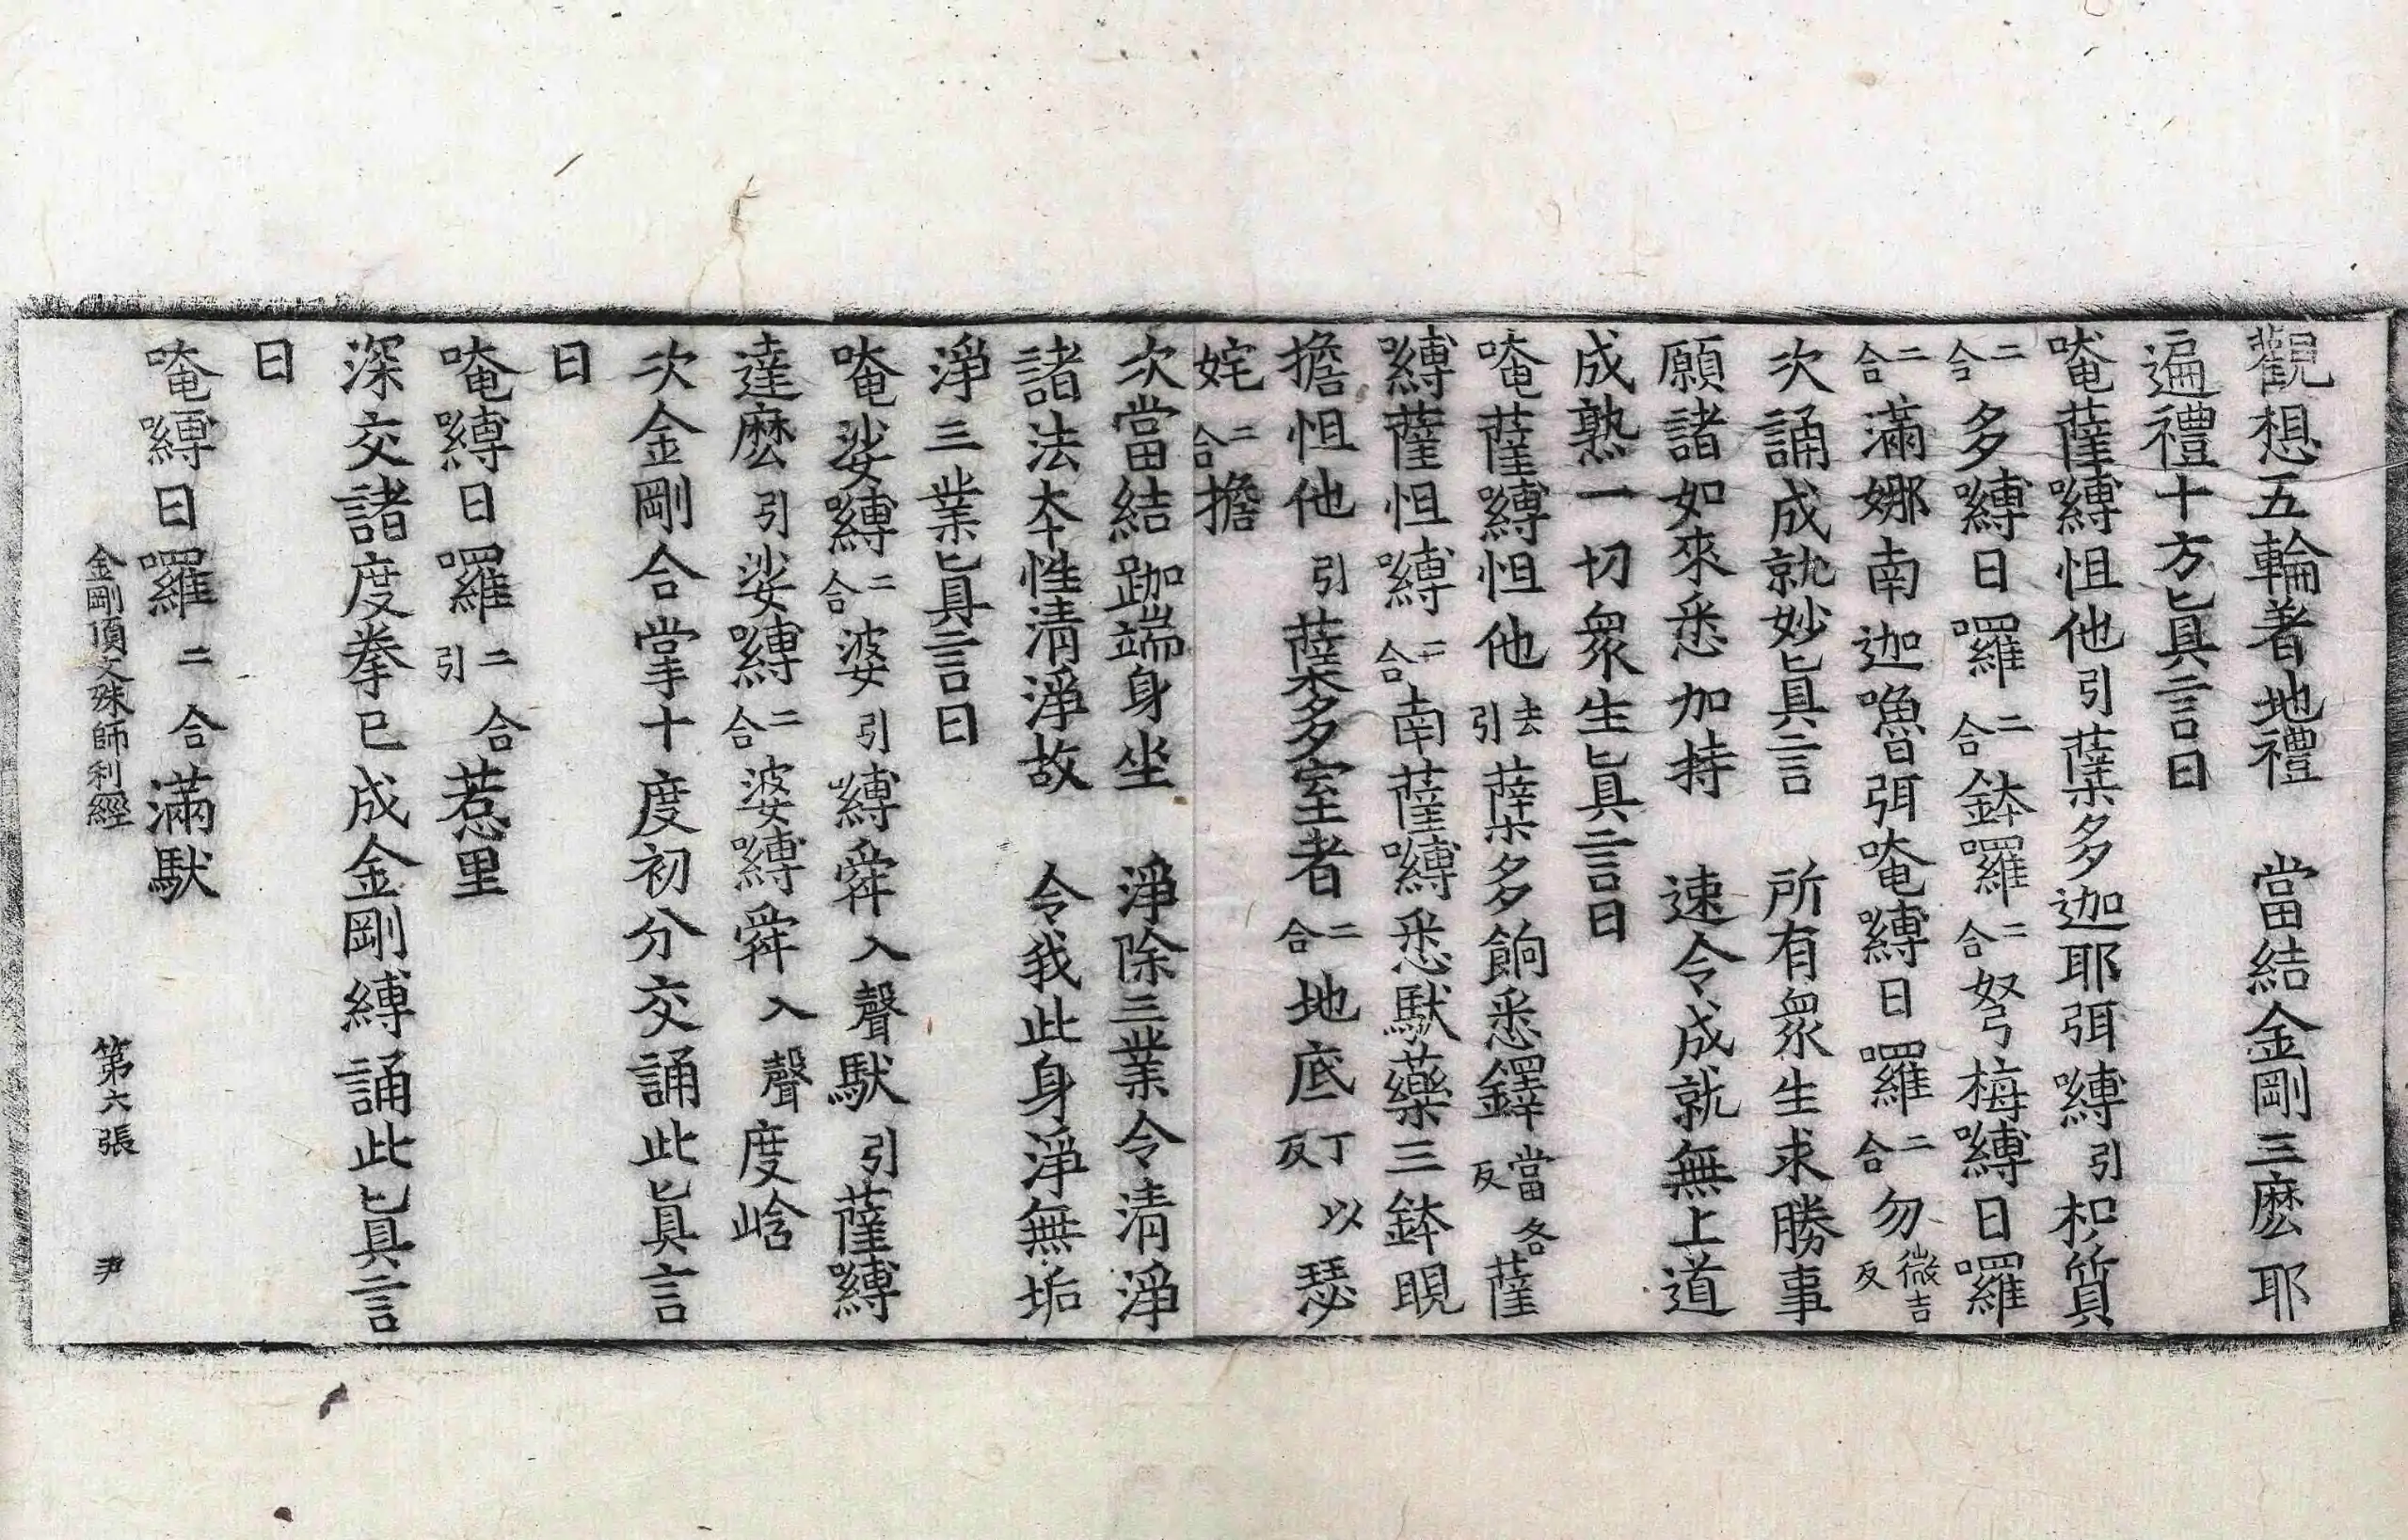 觀想五輪著地禮　當結金剛三麽耶
遍禮十方眞言曰
唵薩嚩怛他引蘖多迦耶弭嚩引枳質
二合多嚩日囉二合鉢囉二合弩梅嚩日囉
二合滿娜南迦嚕弭唵嚩日囉二合勿微吉反
次誦成就妙眞言　所有衆生求勝事
願諸如來悉加持　速令成就無上道
成熟一切衆生眞言曰
唵薩嚩怛他去引蘖多餉悉鐸當各反薩
嚩薩怛嚩二合南薩嚩悉馱藥三鉢睍
擔怛他引蘖多室者二合地底丁以反瑟
姹二合擔
次當結跏端身坐　淨除三業令清淨
諸法本性清淨故　令我此身淨無垢
淨三業眞言曰
唵娑嚩二合婆引嚩舜入聲馱引薩嚩
達麽引娑嚩二合婆嚩舜入聲度晗
次金剛合掌十度初分交誦此眞言
曰
唵嚩日囉二合引惹里
深交諸度拳已成金剛縛誦此眞言
曰
唵嚩日囉二合滿馱
金剛頂文殊師利經　第六張　尹